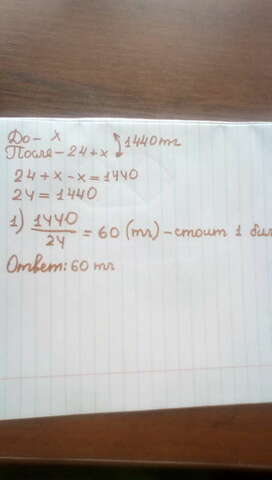 До - х
После - 24+х
1440тг
24 + х - х = 1440
24 = 1440
1) 1440/24 = 60 (тг) - стоит 1 бил
Ответ: 60 тг